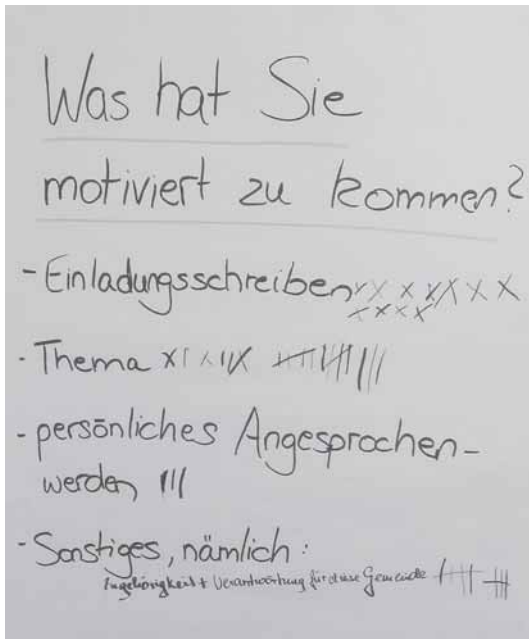 Was hat Sie
motiviert zu kommen?
- Einladungsschreiben xx x x x x x x
x x x x
- Thema
- persönliches Angesprochen-
werden III
- Sonstiges, nämlich:
Zugehörigkeit + Verantwortung für diese Gemeinde